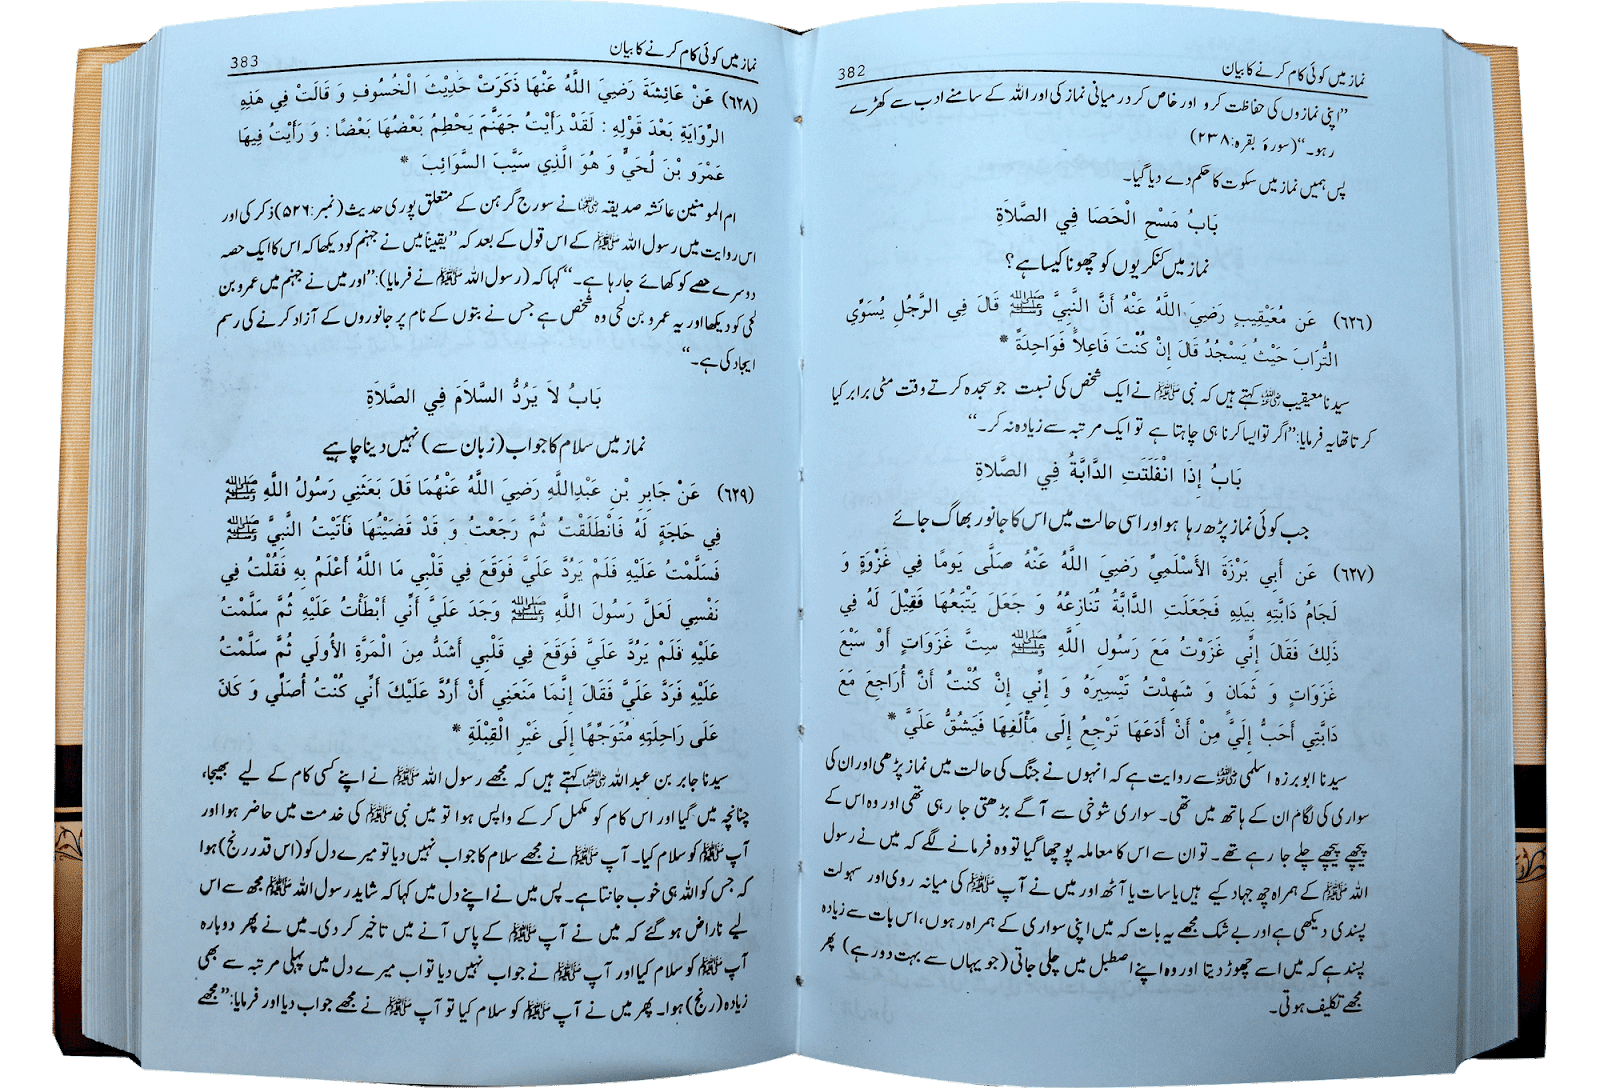 382 نماز میں کوئی کام کرنے کا بیان
’’اپنی نمازوں کی حفاظت کرو اور خاص کر درمیانی نماز کی اور اللہ کے سامنے ادب سے کھڑے
رہو۔‘‘ (سورۂ بقرہ:۲۳۸)
پس ہمیں نماز میں سکوت کا حکم دے دیا گیا۔
بَابُ مَسْحِ الْحَصَا فِي الصَّلَاةِ
نماز میں کنکریوں کو چھونا کیسا ہے؟
(٦٢٦) عَن مُعَيْقِيبٍ رَضِيَ اللَّهُ عَنْهُ أَنَّ النَّبِيَّ ﷺ قَالَ فِي الرَّجُلِ يُسَوِّي
التُّرَابَ حَيْثُ يَسْجُدُ قَالَ إِنْ كُنْتَ فَاعِلاً فَوَاحِدَةً *
سیدنا معیقیب رضی اللہ عنہ کہتے ہیں کہ نبی ﷺ نے ایک شخص کی نسبت جو سجدہ کرتے وقت مٹی برابر کیا
کرتا تھا یہ فرمایا:’’اگر تو ایسا کرنا ہی چاہتا ہے تو ایک مرتبہ سے زیادہ نہ کر۔‘‘
بَابُ إِذَا انْفَلَتَتِ الدَّابَّةُ فِي الصَّلَاةِ
جب کوئی نماز پڑھ رہا ہو اور اسی حالت میں اس کا جانور بھاگ جائے
(٦٢٧) عَن أَبِي بَرْزَةَ الأَسْلَمِيِّ رَضِيَ اللَّهُ عَنْهُ صَلَّى يَوْمًا فِي غَزْوَةٍ وَ
لَجَامُ دَابَّتِهِ بِيَدِهِ فَجَعَلَتِ الدَّابَّةُ تُنَازِعُهُ وَ جَعَلَ يَتْبَعُهَا فَقِيْلَ لَهُ فِي
ذَلِكَ فَقَالَ إِنِّي غَزَوْتُ مَعَ رَسُولِ اللَّهِ ﷺ سِتَّ غَزَوَاتٍ أَوْ سَبْعَ
غَزَوَاتٍ وَ ثَمَانٍ وَ شَهِدْتُ تَيْسِيرَهُ وَ إِنِّي إِنْ كُنْتُ أَنْ أُرَاجِعَ مَعَ
دَابَّتِي أَحَبُّ إِلَيَّ مِنْ أَنْ أَدَعَهَا تَرْجِعُ إِلَى مَأْلَفِهَا فَيَشُقُّ عَلَيَّ *
سیدنا ابو برزہ اسلمی رضی اللہ عنہ سے روایت ہے کہ انہوں نے جنگ کی حالت میں نماز پڑھی اور ان کی
سواری کی لگام ان کے ہاتھ میں تھی۔ سواری شوخی سے آگے بڑھتی جا رہی تھی اور وہ اس کے
پیچھے پیچھے چلے جا رہے تھے۔ تو ان سے اس کا معاملہ پوچھا گیا تو وہ فرمانے لگے کہ میں نے رسول
اللہ ﷺ کے ہمراہ چھ جہاد کیے ہیں یا سات یا آٹھ اور میں نے آپ ﷺ کی میانہ روی اور سہولت
پسندی دیکھی ہے اور بے شک مجھے یہ بات کہ میں اپنی سواری کے ہمراہ رہوں، اس بات سے زیادہ
پسند ہے کہ میں اسے چھوڑ دیتا اور وہ اپنے اصطبل میں چلی جاتی (جو یہاں سے بہت دور ہے) پھر
مجھے تکلیف ہوتی۔
383 نماز میں کوئی کام کرنے کا بیان
(٦٢٨) عَنْ عَائِشَةَ رَضِيَ اللَّهُ عَنْهَا ذَكَرَتْ حَدِيْثَ الْخُسُوفِ وَ قَالَتْ فِي هَذِهِ
الرِّوَايَةِ بَعْدَ قَوْلِهِ : لَقَدْ رَأَيْتُ جَهَنَّمَ يَحْطِمُ بَعْضُهَا بَعْضًا : وَ رَأَيْتُ فِيهَا
عَمْرَو بْنَ لُحَيٍّ وَ هُوَ الَّذِي سَيَّبَ السَّوَائِبَ *
ام المومنین عائشہ صدیقہ رضی اللہ عنہا نے سورج گرہن کے متعلق پوری حدیث (نمبر:۵۲۶) ذکر کی اور
اس روایت میں رسول اللہ ﷺ کے اس قول کے بعد کہ ’’یقیناً میں نے جہنم کو دیکھا کہ اس کا ایک حصہ
دوسرے حصے کو کھائے جا رہا ہے۔‘‘ کہا کہ (رسول اللہ ﷺ نے فرمایا):’’اور میں نے جہنم میں عمرو بن
لحی کو دیکھا اور یہ عمرو بن لحی وہ شخص ہے جس نے بتوں کے نام پر جانوروں کے آزاد کرنے کی رسم
ایجاد کی ہے۔‘‘
بَابُ لاَ يَرُدُّ السَّلاَمَ فِي الصَّلاَةِ
نماز میں سلام کا جواب (زبان سے) نہیں دینا چاہیے
(٦٢٩) عَنْ جَابِرِ بْنِ عَبْدِاللَّهِ رَضِيَ اللَّهُ عَنْهُمَا قَالَ بَعَثَنِي رَسُولُ اللَّهِ ﷺ
فِي حَاجَةٍ لَهُ فَانْطَلَقْتُ ثُمَّ رَجَعْتُ وَ قَدْ قَضَيْتُهَا فَأَتَيْتُ النَّبِيَّ ﷺ
فَسَلَّمْتُ عَلَيْهِ فَلَمْ يَرُدَّ عَلَيَّ فَوَقَعَ فِي قَلْبِي مَا اللَّهُ أَعْلَمُ بِهِ فَقُلْتُ فِي
نَفْسِي لَعَلَّ رَسُولَ اللَّهِ ﷺ وَجَدَ عَلَيَّ أَنِّي أَبْطَأْتُ عَلَيْهِ ثُمَّ سَلَّمْتُ
عَلَيْهِ فَلَمْ يَرُدَّ عَلَيَّ فَوَقَعَ فِي قَلْبِي أَشَدُّ مِنَ الْمَرَّةِ الأُولَي ثُمَّ سَلَّمْتُ
عَلَيْهِ فَرَدَّ عَلَيَّ فَقَالَ إِنَّمَا مَنَعَنِي أَنْ أَرُدَّ عَلَيْكَ أَنِّي كُنْتُ أُصَلِّي وَ كَانَ
عَلَى رَاحِلَتِهِ مُتَوَجِّهًا إِلَى غَيْرِ الْقِبْلَةِ *
سیدنا جابر بن عبداللہ رضی اللہ عنہما کہتے ہیں کہ مجھے رسول اللہ ﷺ نے اپنے کسی کام کے لیے بھیجا،
چنانچہ میں گیا اور اس کام کو مکمل کر کے واپس ہوا تو میں نبی ﷺ کی خدمت میں حاضر ہوا اور
آپ ﷺ کو سلام کیا۔ آپ ﷺ نے مجھے سلام کا جواب نہیں دیا تو میرے دل کو (اس قدر رنج) ہوا
کہ جس کو اللہ ہی خوب جانتا ہے۔ پس میں نے اپنے دل میں کہا کہ شاید رسول اللہ ﷺ مجھ سے اس
لیے ناراض ہو گئے کہ میں نے آپ ﷺ کے پاس آنے میں تاخیر کر دی۔ میں نے پھر دوبارہ
آپ ﷺ کو سلام کیا اور آپ ﷺ نے جواب نہیں دیا تو اب میرے دل میں پہلی مرتبہ سے بھی
زیادہ (رنج) ہوا۔ پھر میں نے آپ ﷺ کو سلام کیا تو آپ ﷺ نے مجھے جواب دیا اور فرمایا:’’مجھے